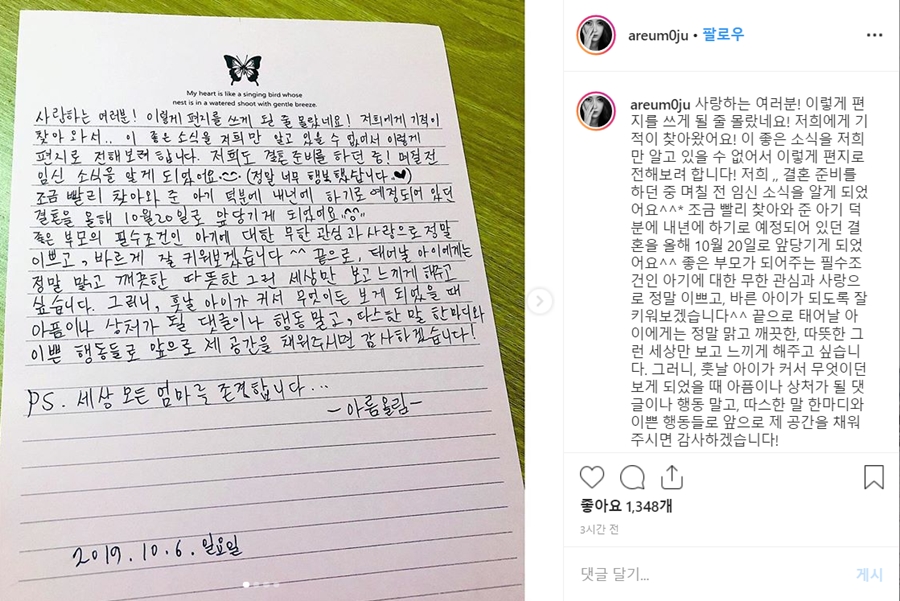 My heart is like a singing bird whose
nest is in a watered shoot with gentle breeze.
사랑하는 여러분! 이렇게 편지를 쓰게 될 줄 몰랐네요! 저희에게 기적이
찾아와서.. 이 좋은 소식을 저희만 알고 있을 수 없어서 이렇게
편지로 전해보려 합니다. 저희도 결혼준비를 하던 중! 며칠전
임신 소식을 알게 되었어요 (정말 너무 행복했답니다.♥)
조금 빨리 찾아와 준 아기 덕분에 내년에 하기로 예정되어 있던
결혼을 올해 10월20일로 앞당기게 되었어요
좋은 부모의 필수조건인 아기에 대한 무한 관심과 사랑으로 정말
이쁘고, 바르게 잘 키워보겠습니다 ^^ 끝으로, 태어날 아이에게는
정말 맑고 깨끗한 따뜻한 그런 세상만 보고 느끼게 해주고
싶습니다. 그러니, 훗날 아이가 커서 무엇이든 보게 되었을 때
아픔이나 상처가 될 댓글이나 행동 말고, 따스한 말 한마디와
이쁜 행동들로 앞으로 제 공간을 채워주시면 감사하겠습니다!
PS. 세상 모든 엄마를 존경합니다...
-아름올림-
2019.10.6.일요일
areum0ju • 팔로우
areum0ju 사랑하는 여러분! 이렇게 편
지를 쓰게 될 줄 몰랐네요! 저희에게 기
적이 찾아왔어요! 이 좋은 소식을 저희
만 알고 있을 수 없어서 이렇게 편지로
전해보려 합니다! 저희 ,, 결혼 준비를
하던 중 며칠 전 임신 소식을 알게 되었
어요^^* 조금 빨리 찾아와 준 아기 덕
분에 내년에 하기로 예정되어 있던 결
혼을 올해 10월 20일로 앞당기게 되었
어요^^ 좋은 부모가 되어주는 필수조
건인 아기에 대한 무한 관심과 사랑으
로 정말 이쁘고, 바른 아이가 되도록 잘
키워보겠습니다^^ 끝으로 태어날 아
이에게는 정말 맑고 깨끗한, 따뜻한 그
런 세상만 보고 느끼게 해주고 싶습니
다. 그러니, 훗날 아이가 커서 무엇이던
보게 되었을 때 아픔이나 상처가 될 댓
글이나 행동 말고, 따스한 말 한마디와
이쁜 행동들로 앞으로 제 공간을 채워
주시면 감사하겠습니다!
좋아요 1,348개
3시간 전
댓글 달기...
게시